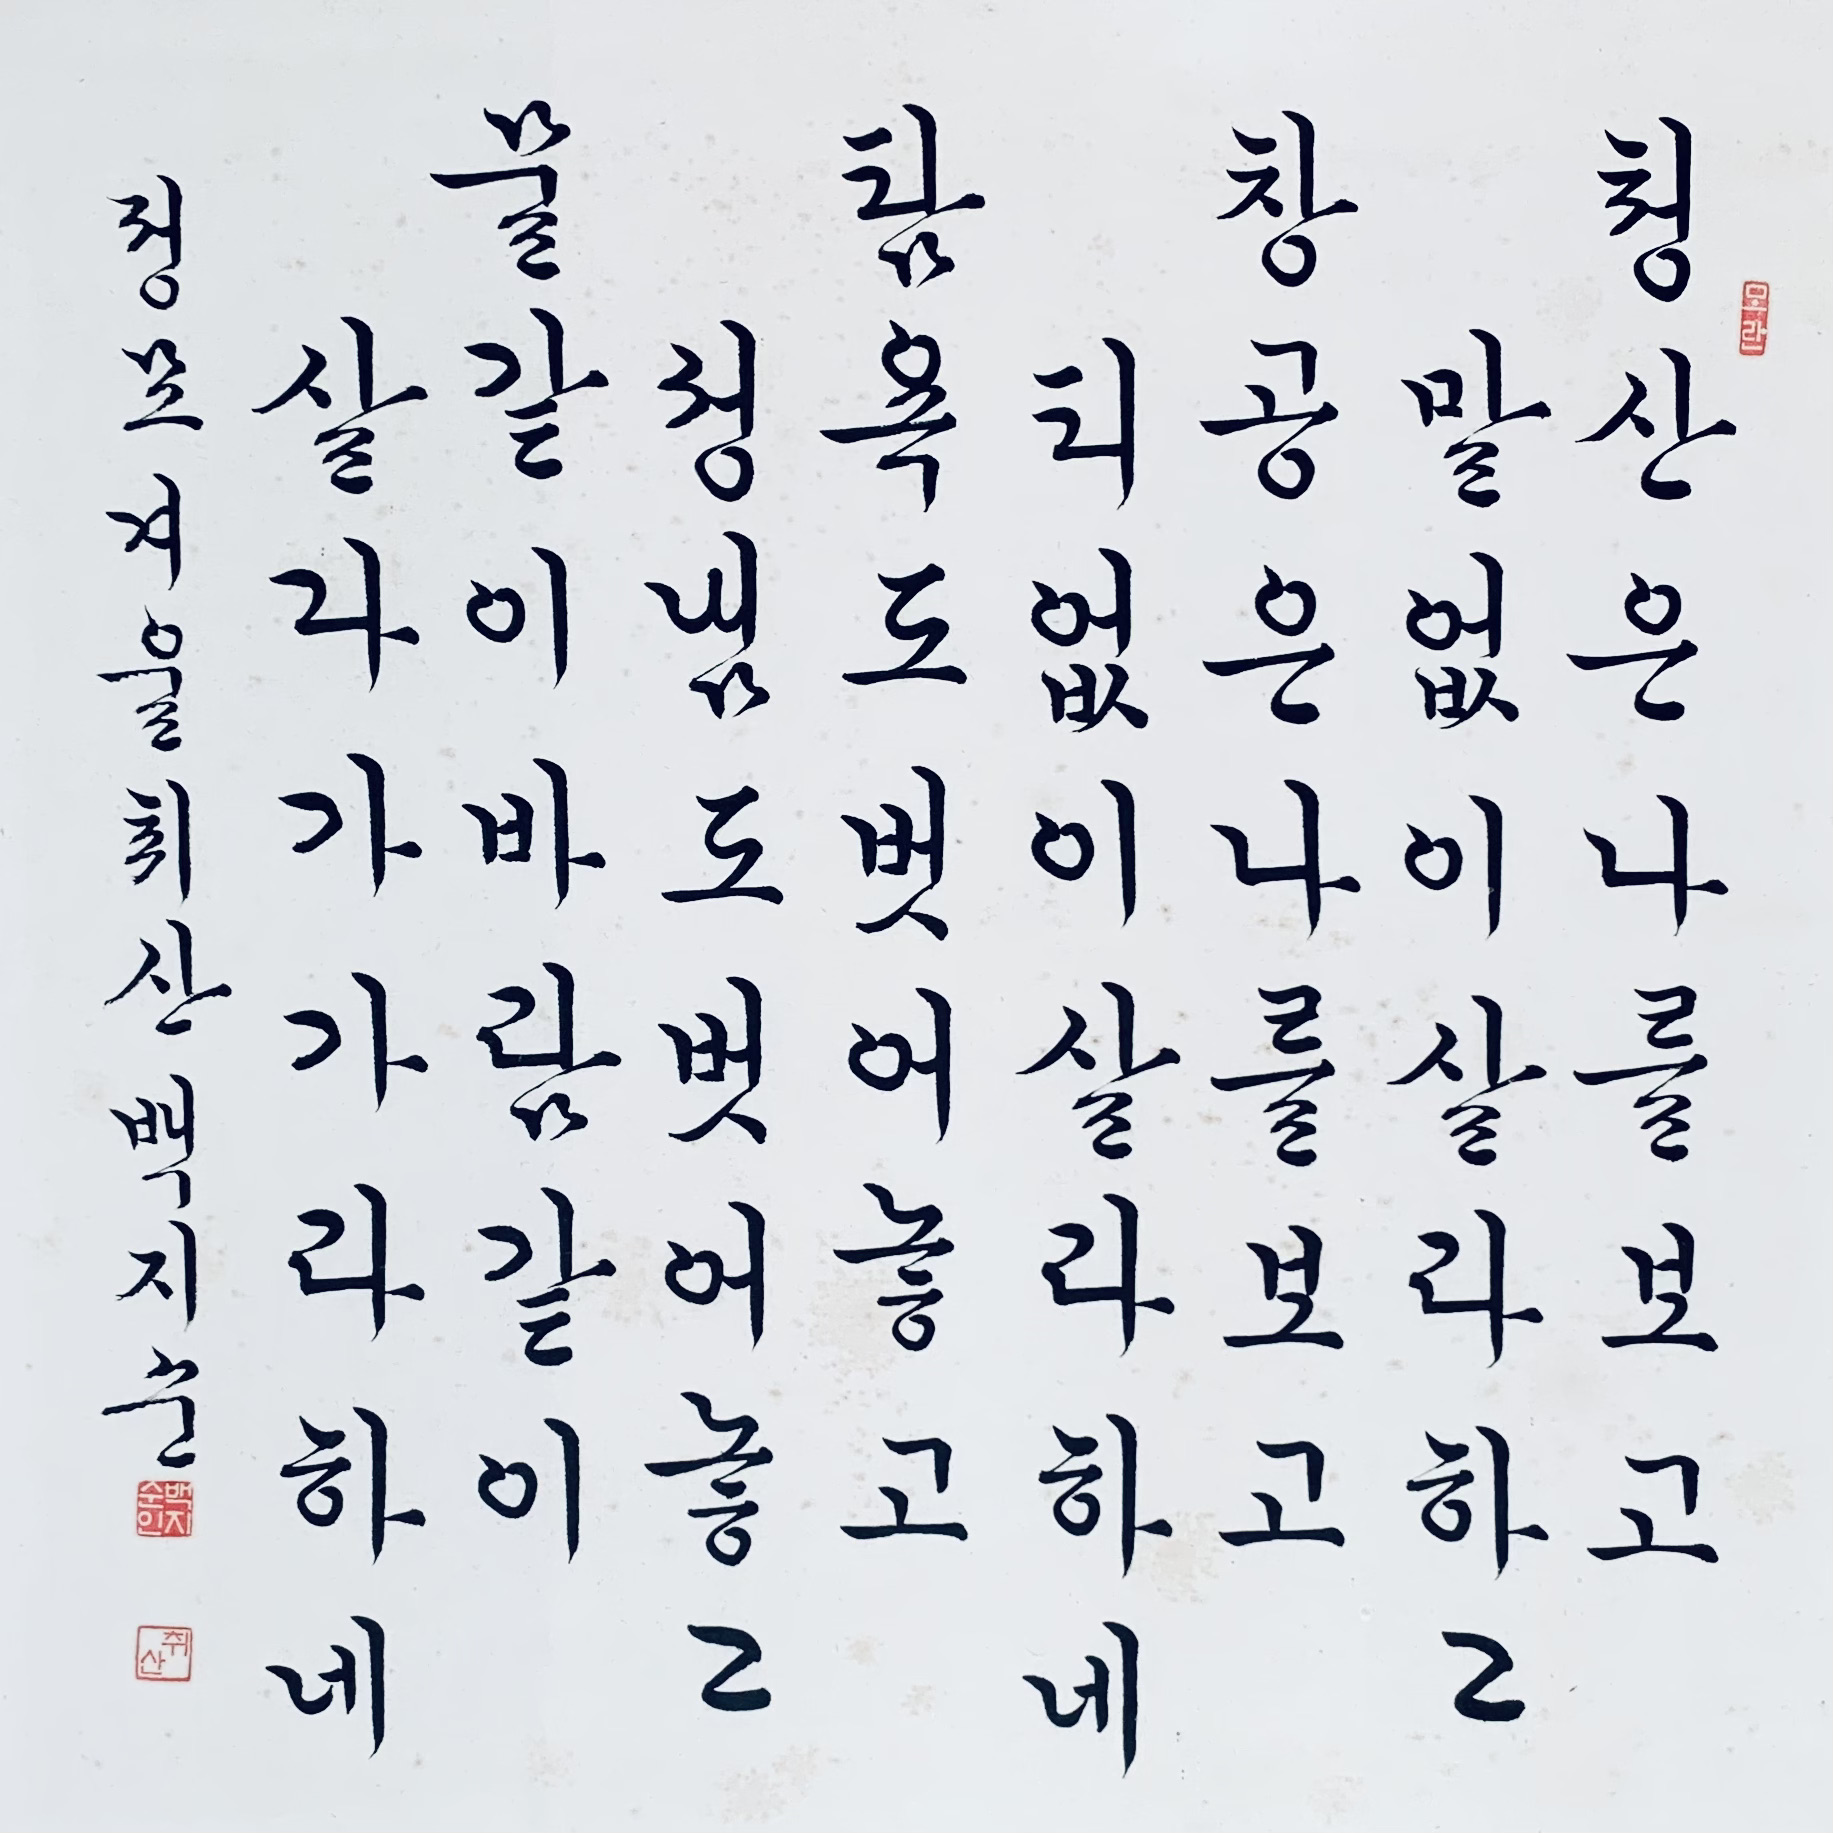 모란
청산은나를보고
말없이살라하〻
창공은나를보고
티없이살라하네
탐욕도벗어놓고
성냄도벗어놓〻
물같이바람같이
살다가가라하네
정묘겨울취산백지순
백지순인
취산